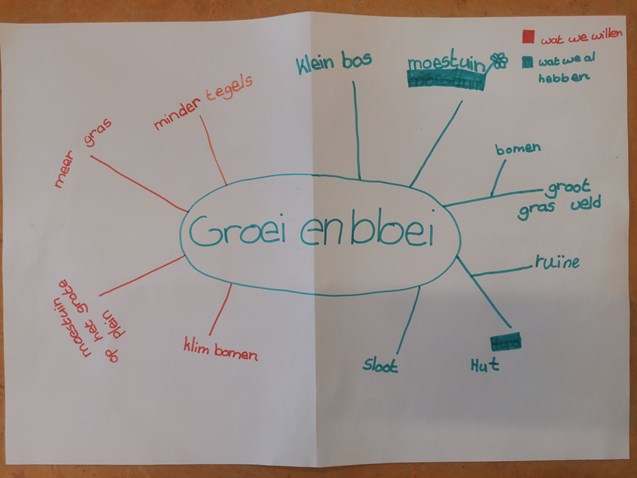 wat we willen
wat we al
hebben
klein bos
moestuin
minder tegels
meer gras
bomen
groot
gras veld
Groei en bloei
ruïne
moestuin
op het grote
plein
klim bomen
Sloot
Hut